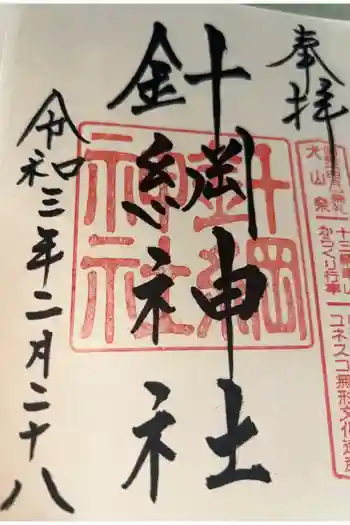 奉拝
針綱神社
令和三年二月二十八
針綱
神社
犬山祭
からくり行事
ユネスコ無形文化遺産